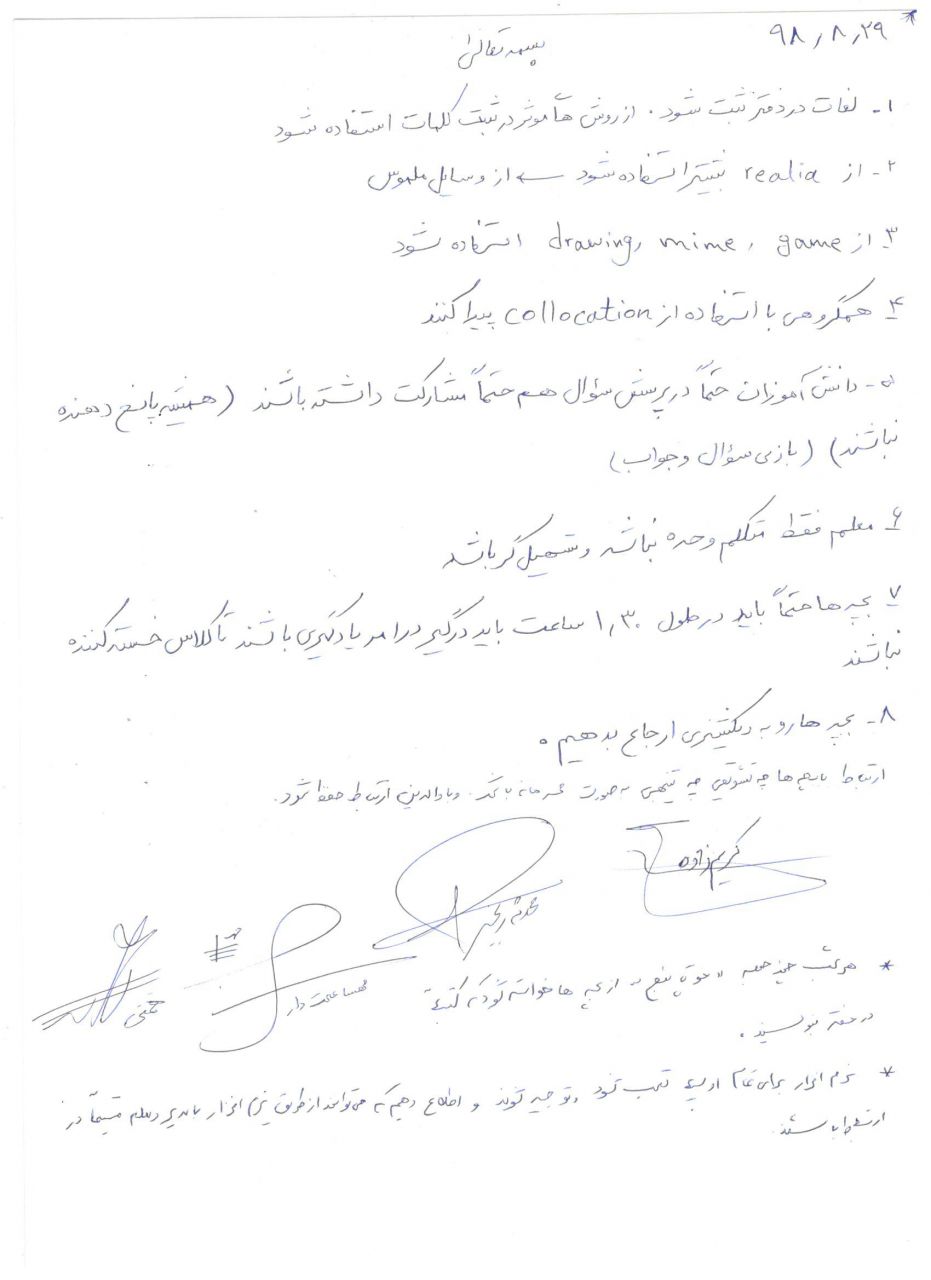 * ۹۸٫۸٫۲۹
بسمه تعالی
۱- لغات در دفتر ثبت شود. از روش های موثر در ثبت کلمات استفاده شود
۲- از realia بیشتر استفاده شود ← از وسایل ملموس
۳- از game، mime، drawing استفاده شود
۴- همگروهی با استفاده از collocation پیدا کنند
۵- دانش آموزان حتماً در پرسش سؤال هم حتماً مشارکت داشته باشند (همیشه پاسخ دهنده
نباشند) (بازی سؤال و جواب)
۶- معلم فقط متکلم وحده نباشد و تسهیل گر باشد
۷- بچه ها حتماً باید در طول ۱٫۳۰ ساعت باید درگیر در امر یادگیری باشند تا کلاس خسته کننده
نباشند
۸- بچه ها رو به دیکشنری ارجاع بدهیم.
ارتباط با بچه ها چه تشویقی چه تنبیهی به صورت محرمانه باشد. و با والدین ارتباط حفظ شود.
کریم زاده
* هر شب چند جمله از بچه ها خواسته شود که
در دفتر بنویسند.
* نرم افزار برای تمام اولیا نصب شود و توجیه شوند و اطلاع دهیم که می توانند از طریق نرم افزار با مدیر و معلم مستقیماً در
ارتباط باشند